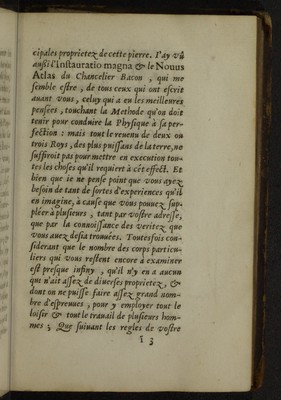 cipales proprietez de cette pierre. I'ay vû
aussi l'Instauratio magna & le Nouus
Atlas du Chancelier Bacon, qui me
semble estre, de tous ceux qui ont escrit
auant vous, celuy qui a eu les meilleures
pensées, touchant la Methode qu'on doit
tenir pour conduire la Physique à sa per-
fection : mais tout le reuenu de deux ou
trois Roys, des plus puissans de la terre, ne
suffiroit pas pour mettre en execution tou-
tes les choses qu'il requiert à cét effect. Et
bien que ie ne pense point que vous ayez
besoin de tant de sortes d'experiences qu'il
en imagine, à cause que vous pouuez sup-
pléer à plusieurs, tant par vostre adresse,
que par la connoissance des veritez que
vous auez desia trouuées. Toutesfois con-
siderant que le nombre des corps particu-
liers qui vous restent encore à examiner
est presque infiny, qu'il n'y en a aucun
qui n'ait assez de diuerses proprietez, &
dont on ne puisse faire assez grand nom-
bre d'espreuues, pour y employer tout le
loisir & tout le trauail de plusieurs hom-
mes ; Que suiuant les regles de vostre
i 3